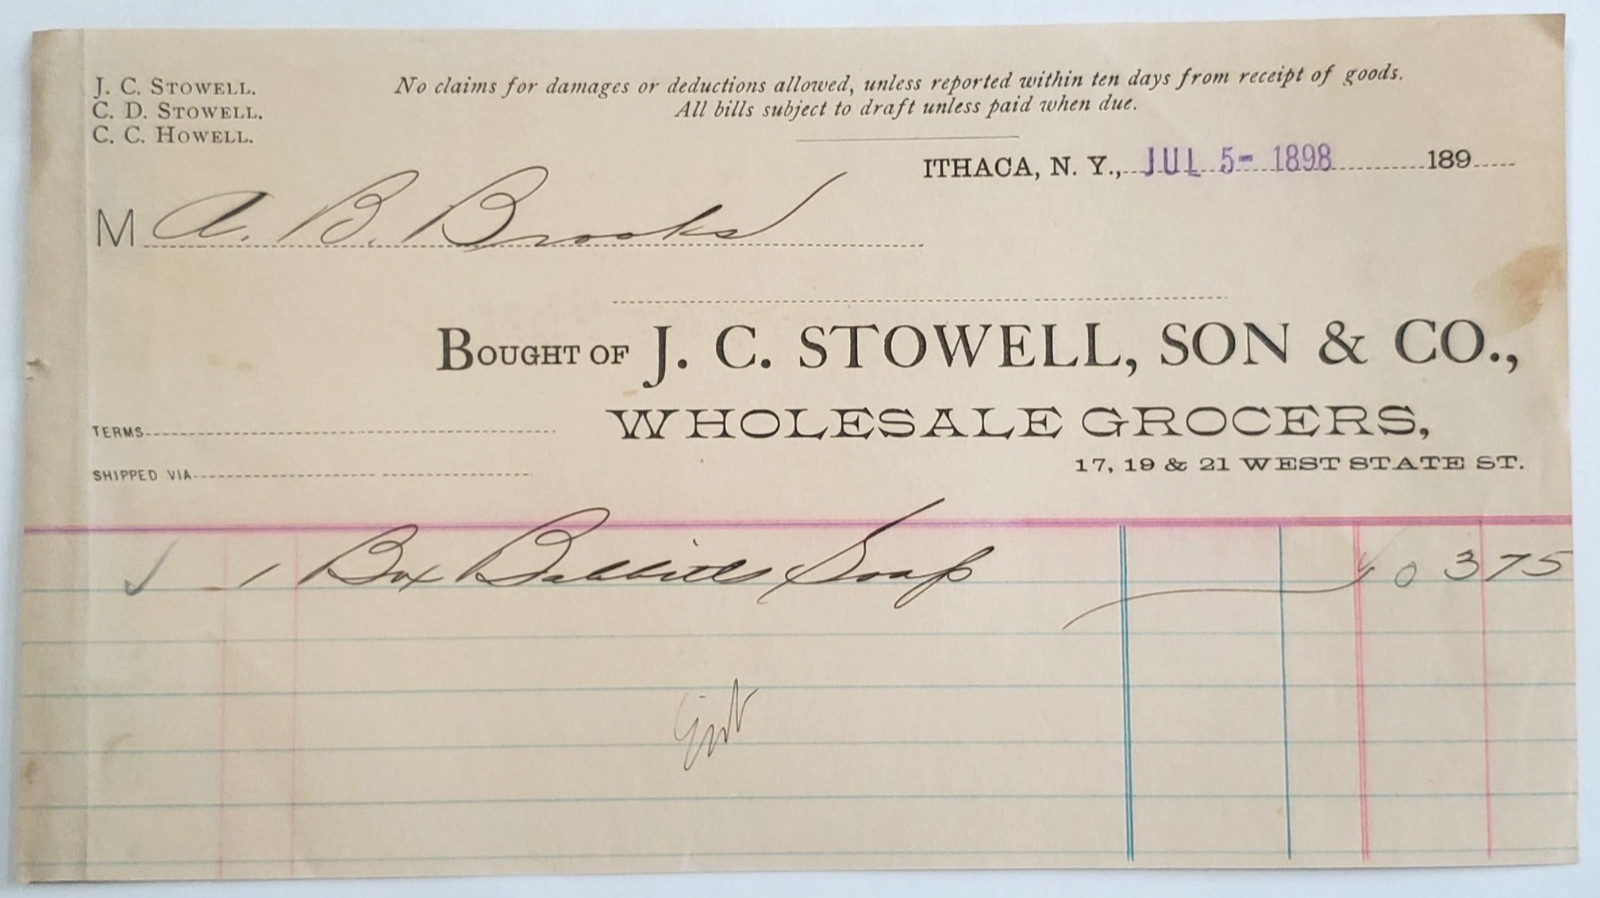 J. C. STOWELL.
C. D. STOWELL.
C. C. HOWELL.
No claims for damages or deductions allowed, unless reported within ten days from receipt of goods.
All bills subject to draft unless paid when due.
ITHACA, N. Y., JUL 5- 1898 189
M A. B. Brooks
BOUGHT OF J. C. STOWELL, SON & CO.,
WHOLESALE GROCERS,
TERMS
17, 19 & 21 WEST STATE ST.
SHIPPED VIA
1 Box Babbitts Soap 3 75